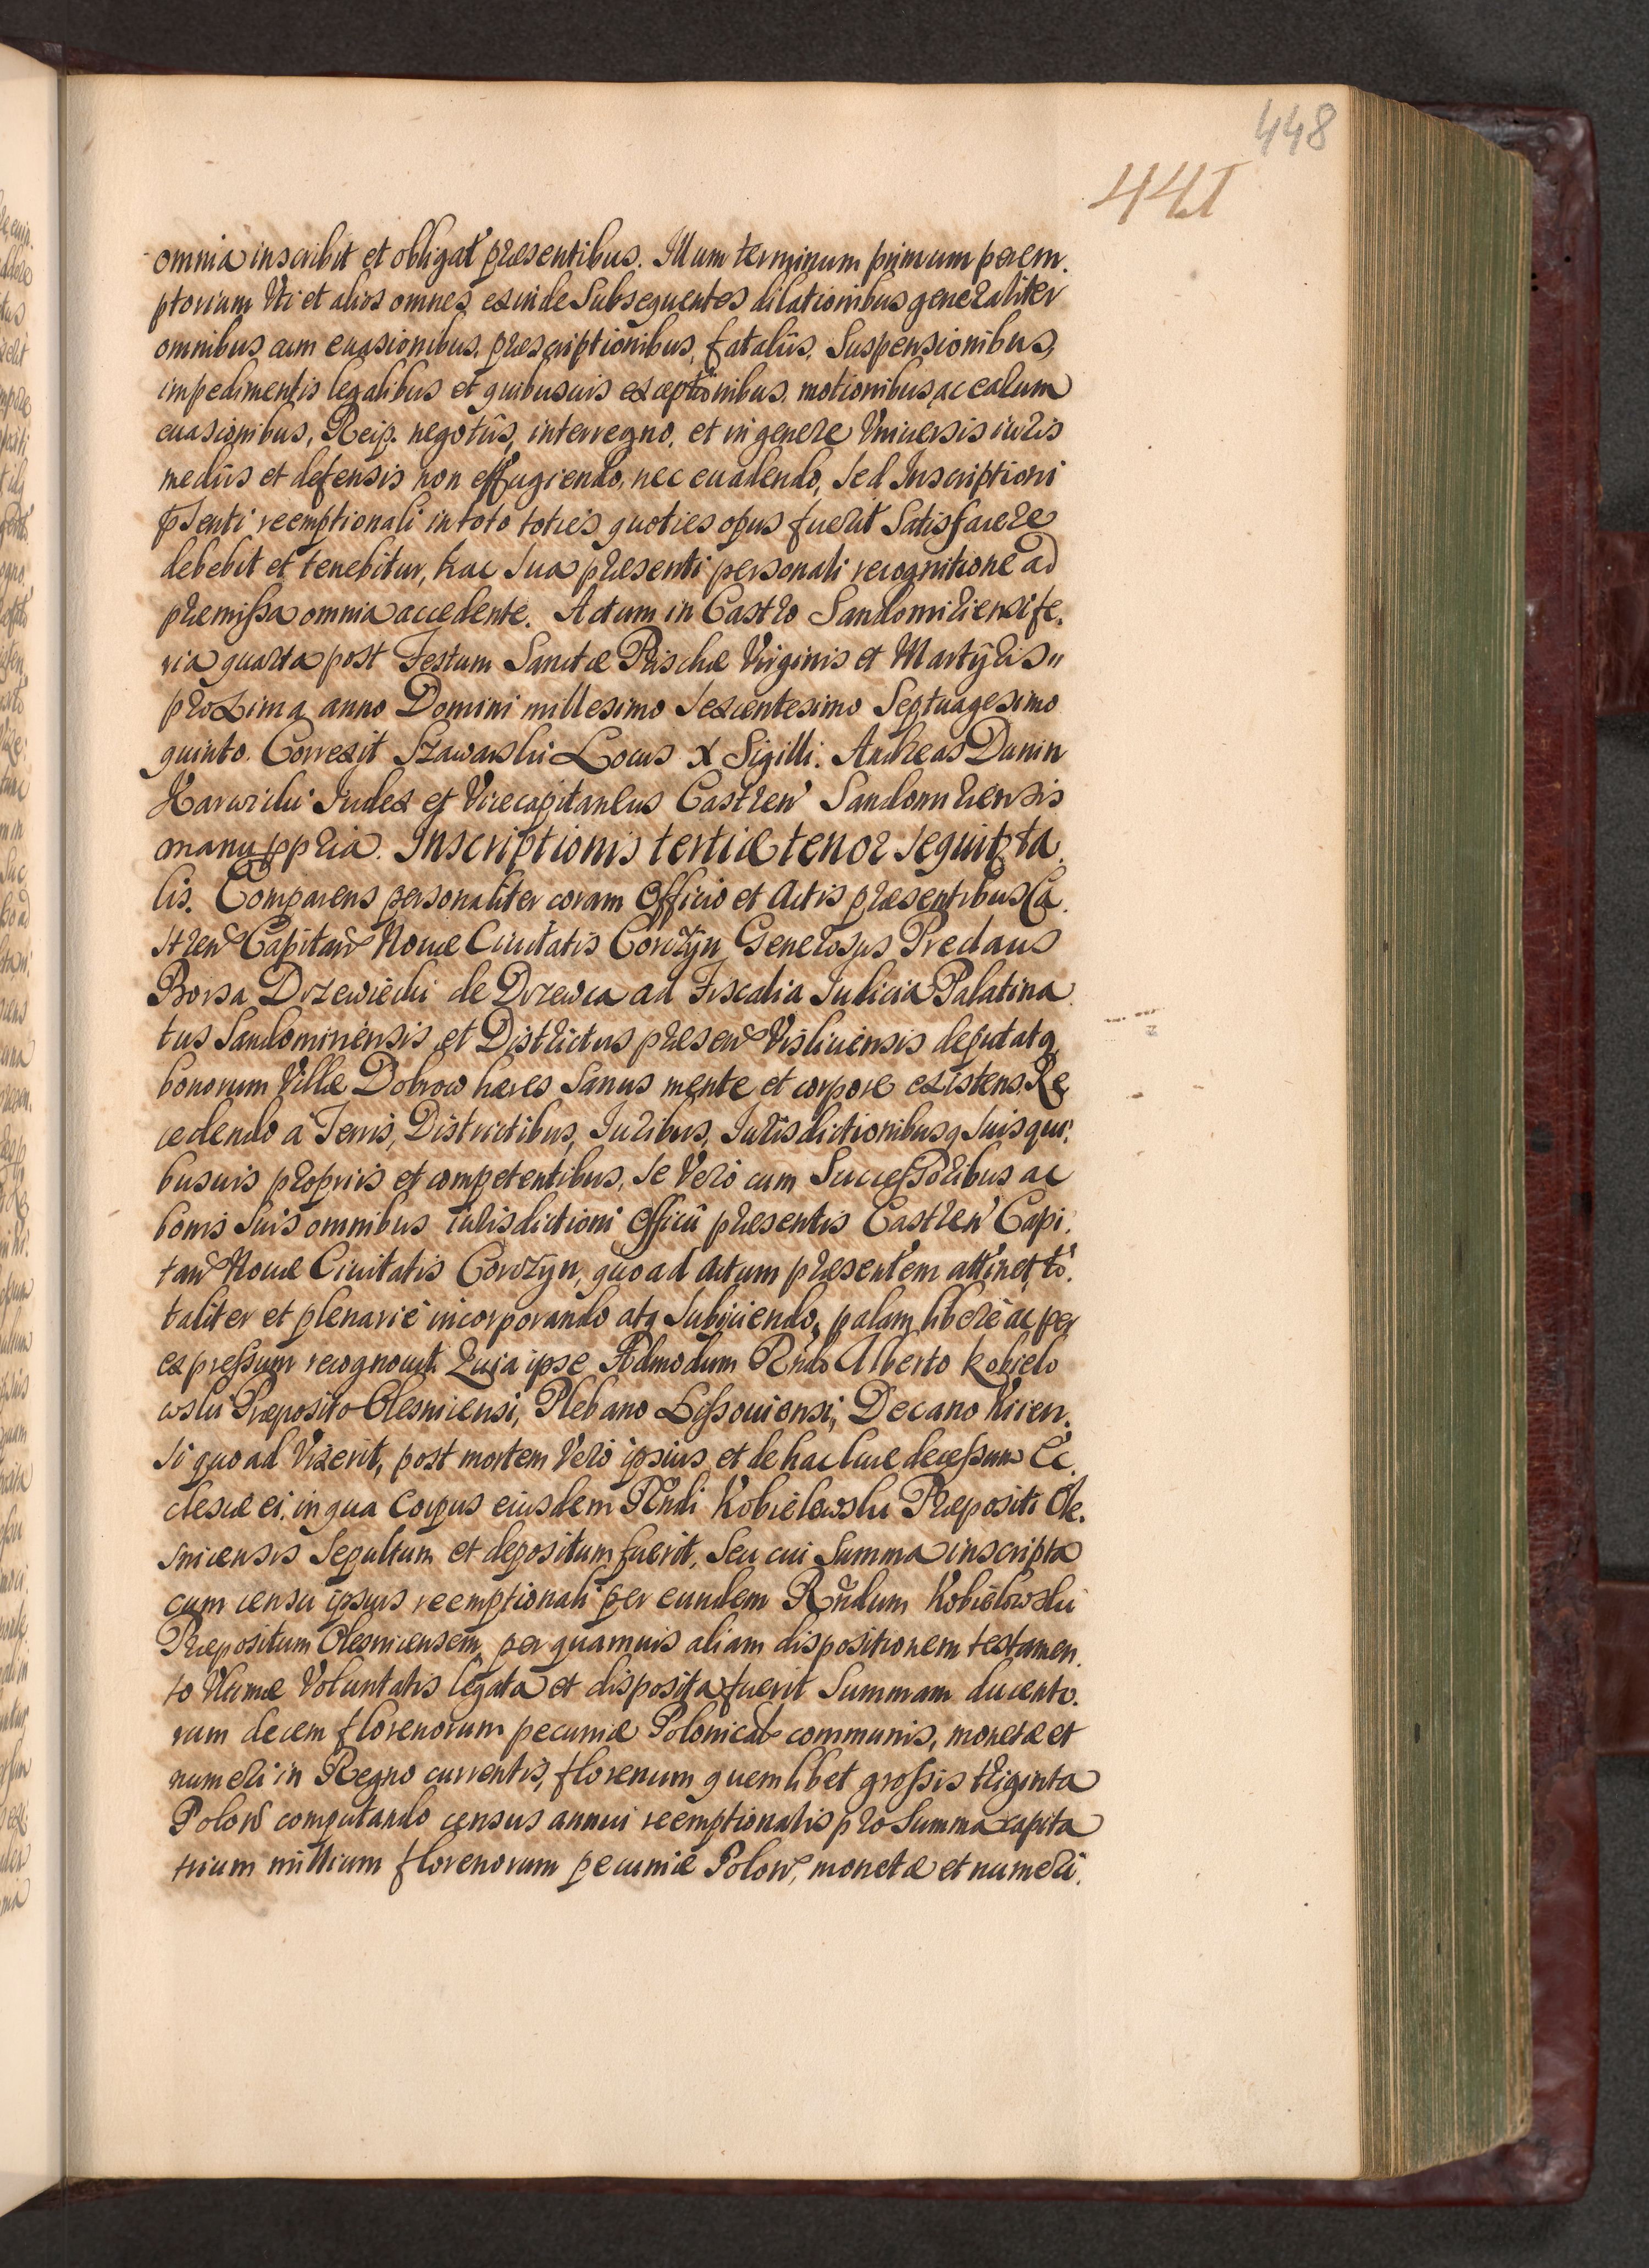 448
441
omnia inscribit et obligat præsentibus. Illum terminum primum perem.
ptorium Uti et alios omnes exinde Subsequentes dilationibus generaliter
omnibus, cum euasionibus, præscriptionibus, fatalijs, Suspensionibus,
impedimentis legalibus et quibusuis exceptionibus, motionibus, ac earum
euasionibus, Reip. negotijs, interregno, et in genere Vniuersis iuris
medijs et defensis non effugiendo, nec euadendo, sed Inscriptioni
pñsenti reemptionali in toto toties quoties opus fuerit Satisfacere
debebit et tenebitur, hac sua præsenti personali recognitione ad
præmissa omnia accedente. Actum in Castro Sandomiriensi fe.
ria quarta post Festum Sanctæ Priscæ Virginis et Martÿris
proxima anno Domini millesimo sexcentesimo Septuagesimo
quinto. Correxit Szawarski Locus X Sigilli: Andreas Dunin
Karwicki Iudex et Vicecapitaneus Castren Sandomiriensis
manu ppria. Inscriptionis tertiæ tenor sequitr ta.
lis. Comparens personaliter coram Officio et Actis præsentibus Ca.
stren Capitan Nouæ Ciuitatis Corczyn Generosus Predaus
Borsa Drzewiecki de Drzewica ad Fiscalia Iudicia Palatina.
tus Sandomiriensis et Districtus præsen Visliciensis deputatq
bonorum Villæ Dobrow hæres Sanus mente et corpore existens Re
cedendo a Terris, Districtibus, Iuribus, Iurisdictionibusq suis qui.
busuis proprijs et competentibus, se Vero cum Successoribus ac
bonis suis omnibus iurisdictioni Officij præsentis Castren Capi.
tan Nouæ Ciuitatis Corczyn, quo ad Actum præsentem attinet, to.
taliter et plenarie incorporando atq subijciendo, palam libere ac per
expressum recognouit. Quia ipse Admodum Rndo Alberto Kobielo
wski Præposito Olesnicensi, Plebano Lissouiensi, Decano Kicen.
si quo ad Vixerit, post mortem Vero ipsius et de hac luce decessum Ec.
clesiæ ei, in qua Corpus eiusdem Rndi Kobielowski Præpositi Ole.
snicensis Sepultum et depositum fuerit, Seu cui Summa inscripta
cum censu ipsius reemptionali per eundem Rndum Kobielowski
Præpositum Olesnicensem, per quamuis aliam dispositionem testamen.
to Vltimæ Voluntatis legata et disposita fuerit Summam ducento.
rum decem florenorum pecuniæ Polonicalis communis, monetæ et
numeri in Regno currentis, florenum quemlibet grossis triginta
Polon computando census annui reemptionalis pro Summa capita
trium millium florenorum pecuniæ Polon, monetæ et numeri.